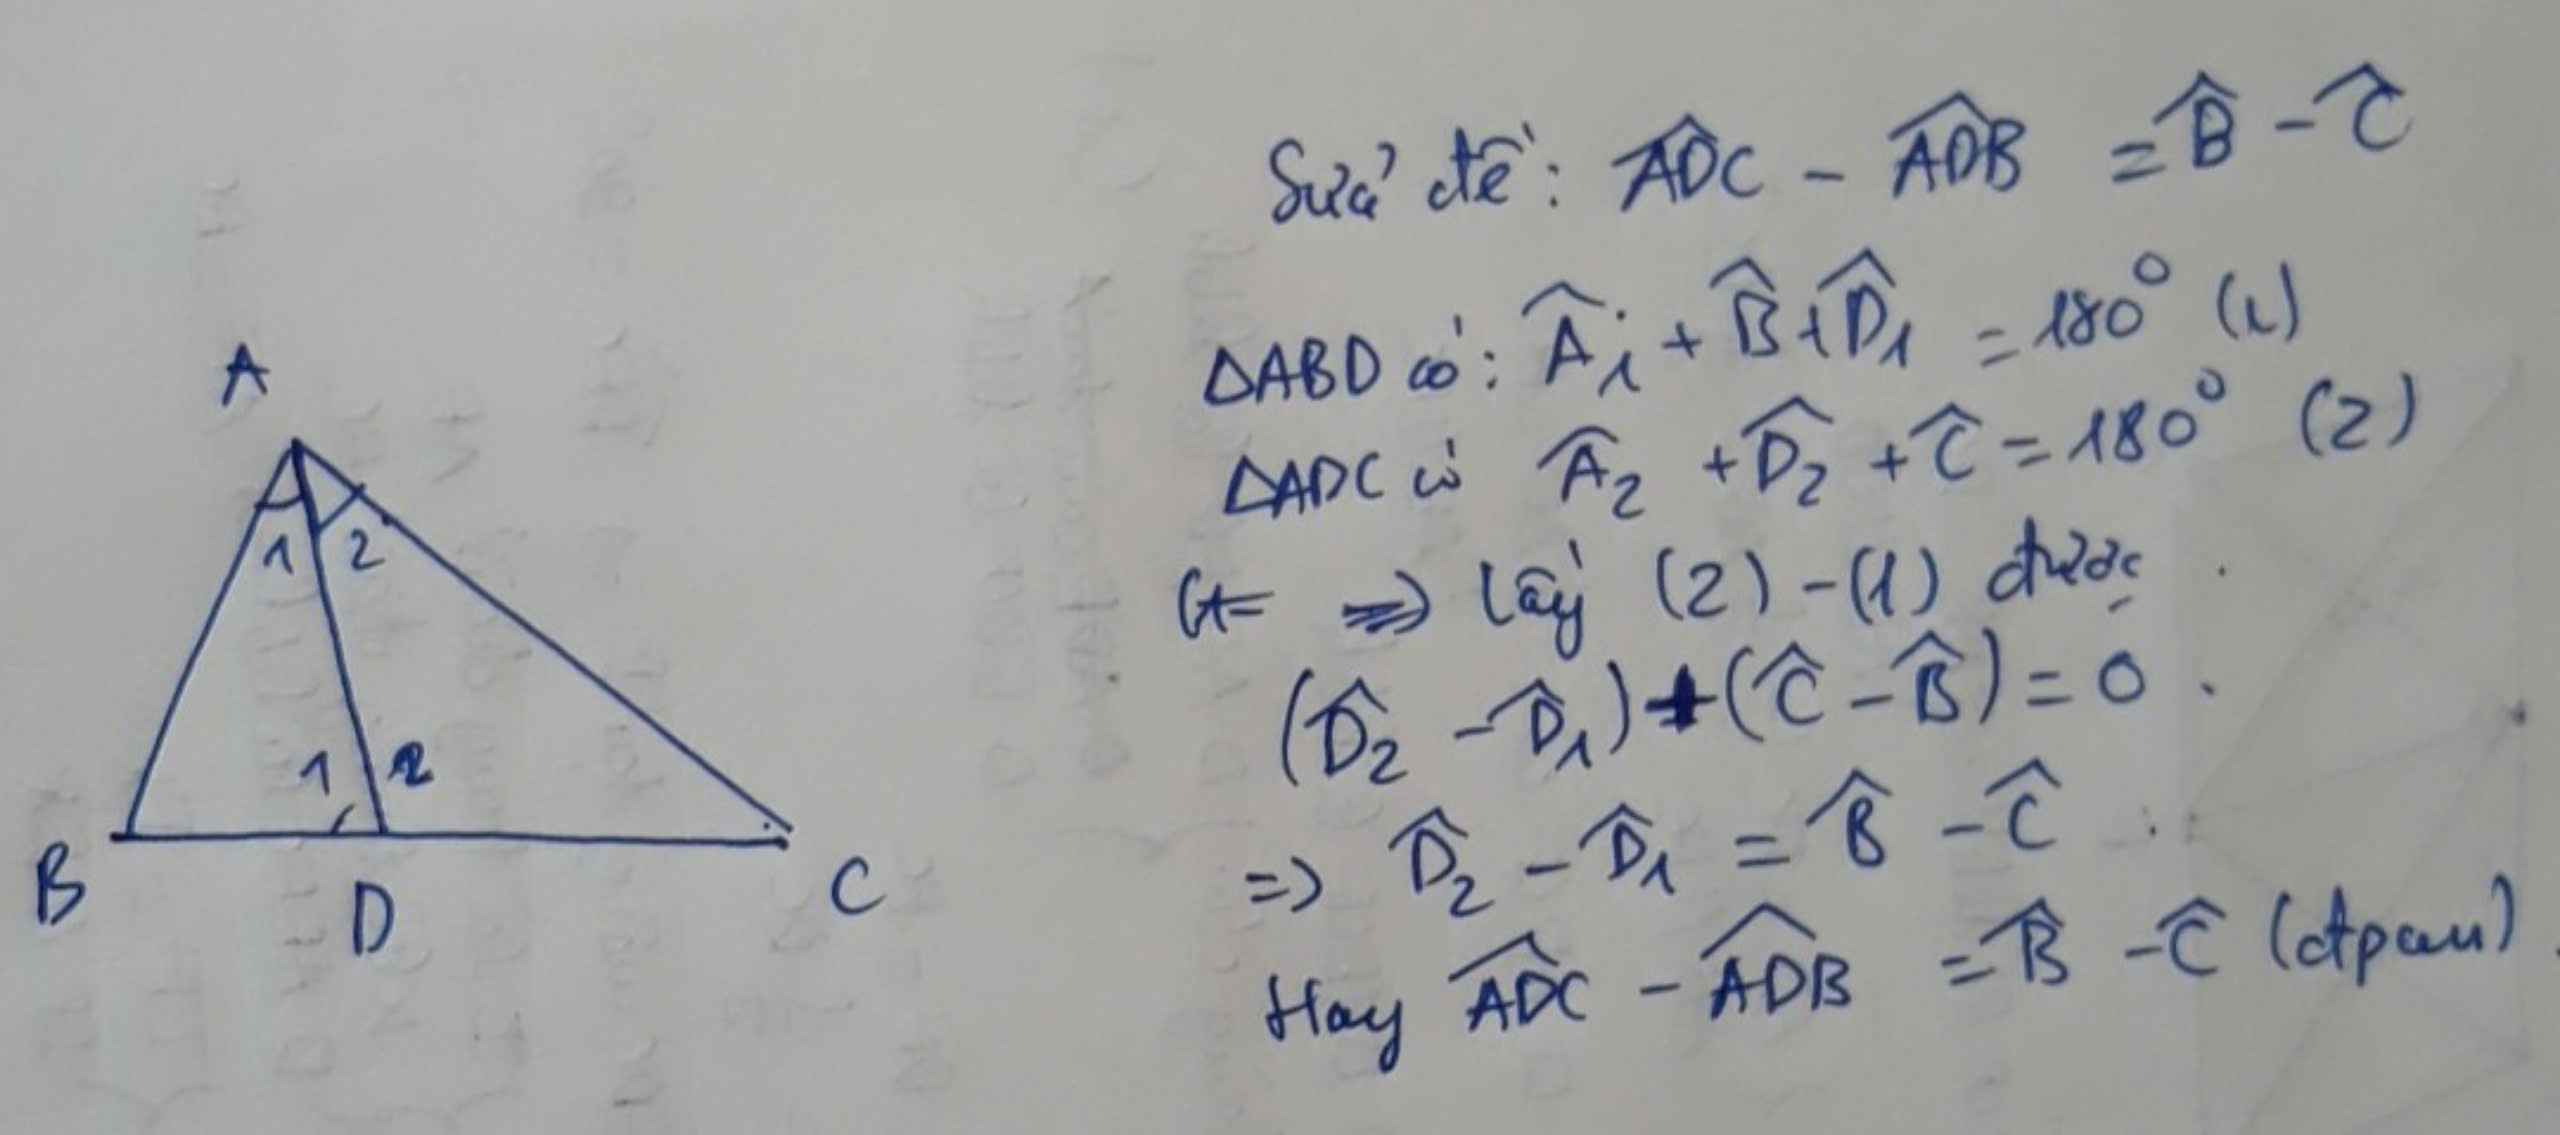 A
1 2
1 2
B D C
Sửa đề: \widehat{ADC} - \widehat{ADB} = \widehat{B} - \widehat{C}
ΔABD có: \widehat{A}_1 + \widehat{B} + \widehat{D}_1 = 180° (1)
ΔADC có \widehat{A}_2 + \widehat{D}_2 + \widehat{C} = 180° (2)
=> lấy (2) - (1) được
(\widehat{D}_2 - \widehat{D}_1) + (\widehat{C} - \widehat{B}) = 0.
=> \widehat{D}_2 - \widehat{D}_1 = \widehat{B} - \widehat{C}
Hay \widehat{ADC} - \widehat{ADB} = \widehat{B} - \widehat{C} (đpcm).